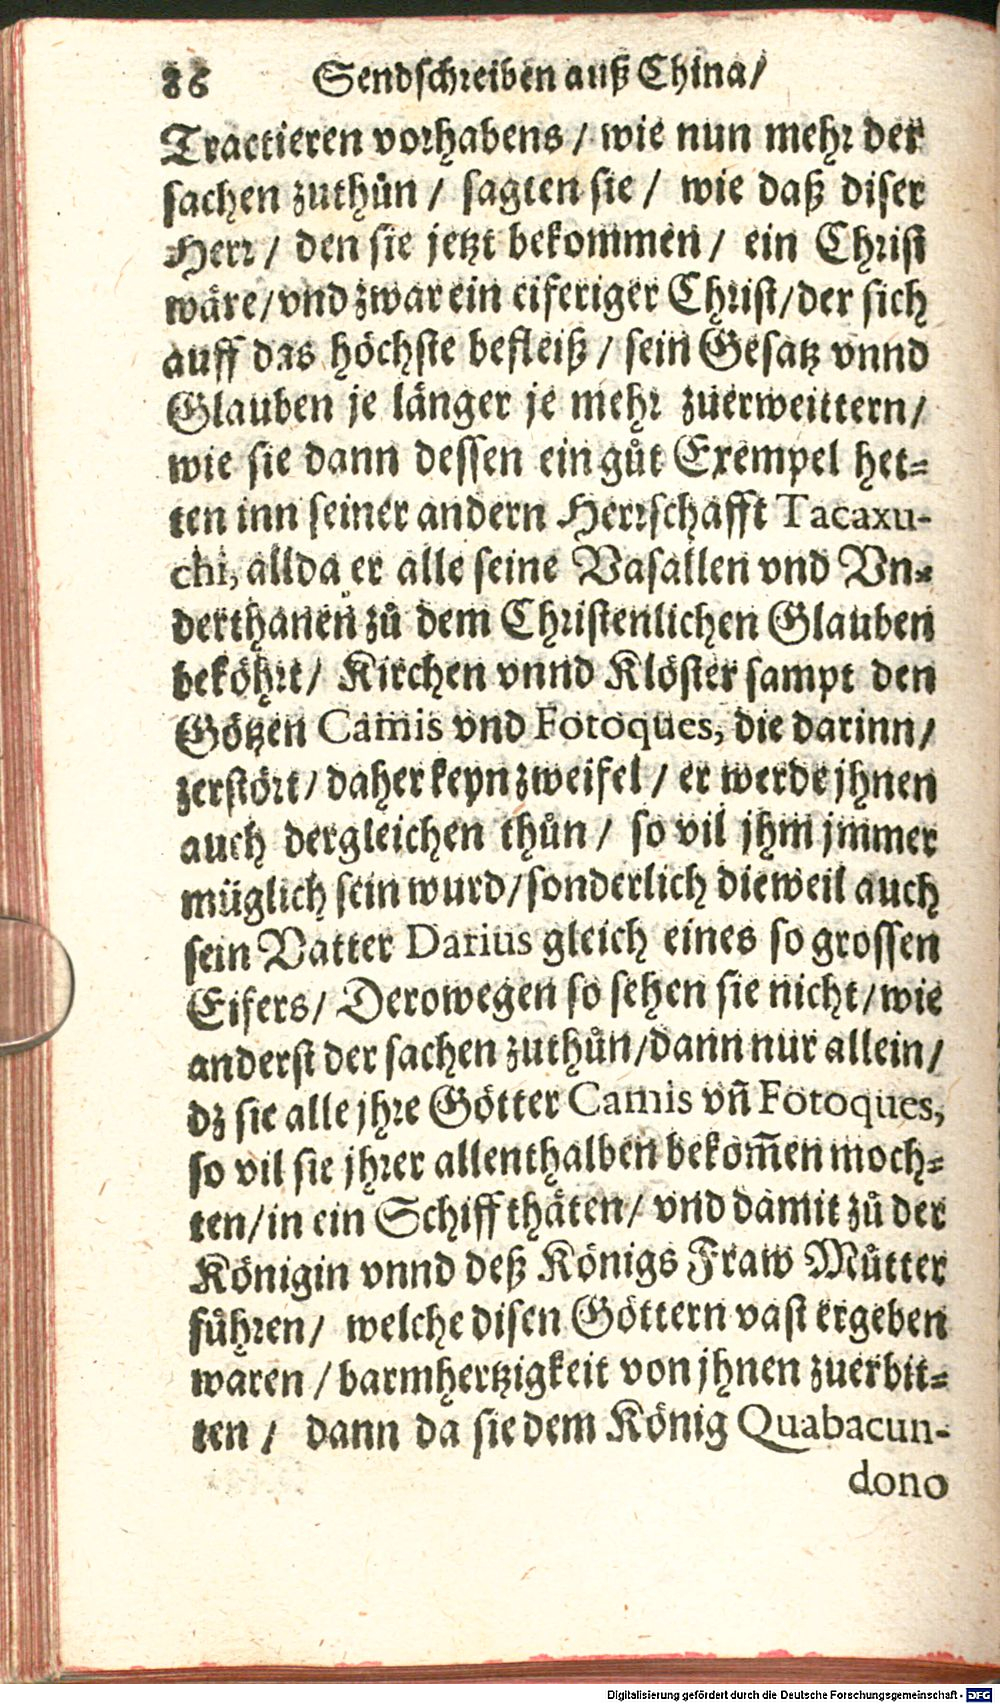 86 Sendschreiben auß China/
Tractieren vorhabens / wie nun mehr der
sachen zuthůn / sagten sie / wie daß diser
Herr / den sie jetzt bekommen / ein Christ
wäre/vnd zwar ein eiferiger Christ/der sich
auff das höchste befleiß / sein Gesatz vnnd
Glauben je länger je mehr zuerweittern/
wie sie dann dessen ein gůt Exempel het-
ten inn seiner andern Herrschafft Tacaxu-
chi, allda er alle seine Vasallen vnd Vn-
derthanen zů dem Christenlichen Glauben
beköhrt/ Kirchen vnnd Klöster sampt den
Götzen Camis vnd Fotoques, die darinn/
zerstört/ daher keyn zweifel / er werde jhnen
auch dergleichen thůn / so vil jhm jmmer
müglich sein wurd/sonderlich dieweil auch
sein Vatter Darius gleich eines so grossen
Eifers/ Derowegen so sehen sie nicht/wie
anderst der sachen zuthůn/dann nur allein/
dz sie alle jhre Götter Camis vñ Fotoques,
so vil sie jhrer allenthalben bekom̃en moch-
ten/in ein Schiff thäten/ vnd damit zů der
Königin vnnd deß Königs Fraw Můtter
führen/ welche disen Göttern vast ergeben
waren /barmhertzigkeit von jhnen zuerbit-
ten / dann da sie dem König Quabacun-
dono
Digitalisierung gefördert durch die Deutsche Forschungsgemeinschaft - DFG